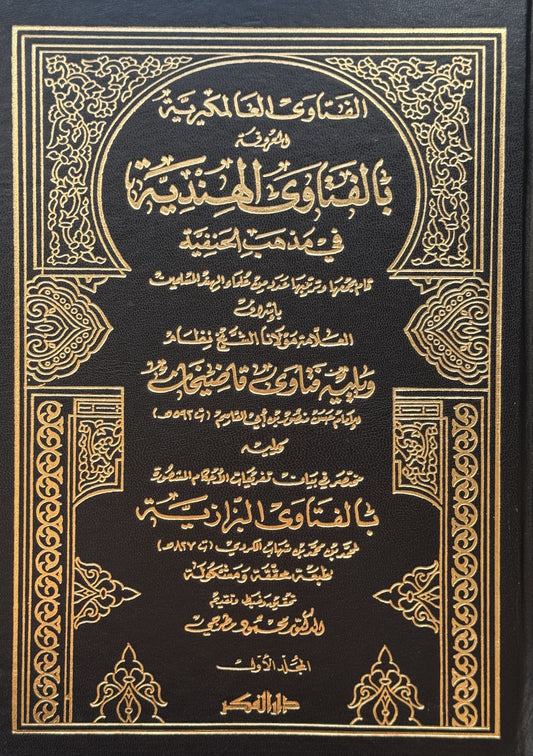 الفتاوى العالمكيرية
المعروفة
بالفتاوى الهندية
في مذهب الحنفية
قام بجمعها وترتيبها عدد من علماء الهند المسلمين
بإشراف
العلامة مولانا الشيخ نظام
ويليه فتاوى قاضيخان
للإمام حسن منصور بن أبي القاسم (ت ٥٩٢ هـ)
وعليه
مختصر في بيان تعريفات الأحكام
بالفتاوى البزازية
لمحمد بن محمد بن شهاب الكردي (ت ٨٢٧ هـ)
طبعة محققة ومشكولة
تحقيق وضبط وتقديم
الدكتور محمود مطرجي
المجلد الأول
دار الفكر